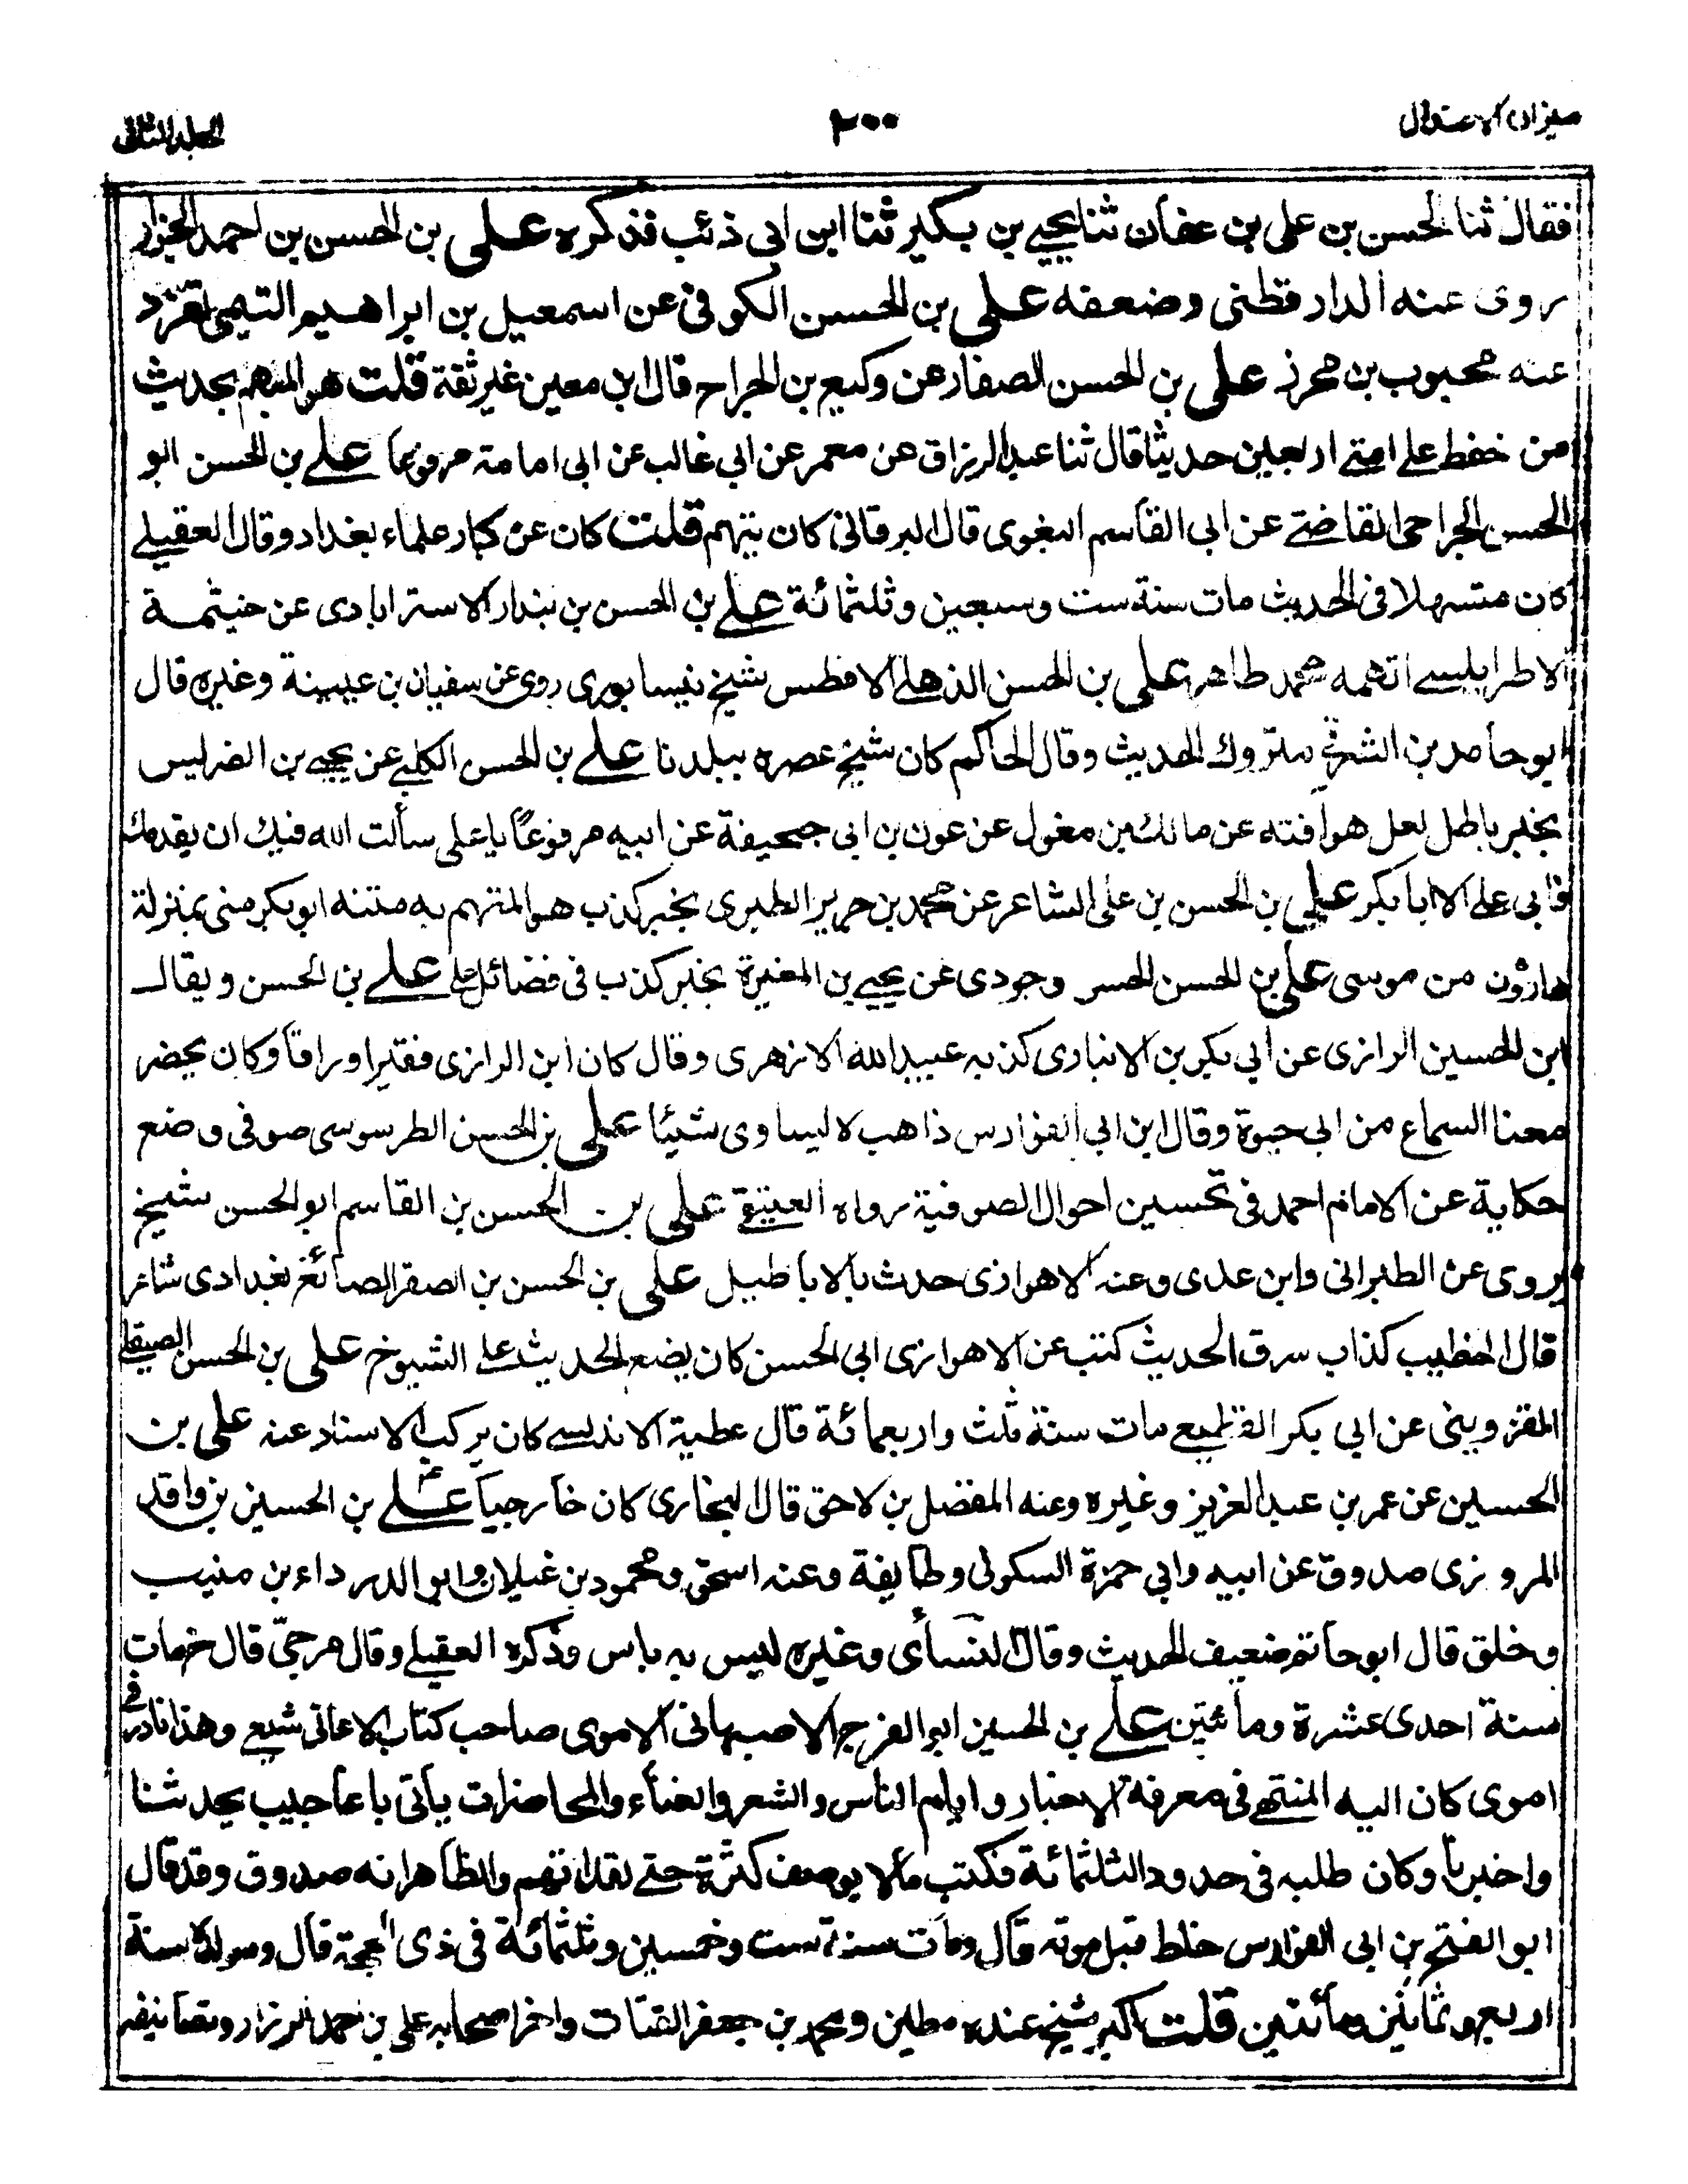 ميزان الاعتدال
٢٠٠
الجلد الثانى
فقال ثنا الحسن بن على بن عفان ثنا يحيى بن بكير ثنا ابن ابى ذئب فذكره على بن الحسن بن احمد الخزاز
روى عنه الدارقطنى وضعفه على بن الحسن الكوفى عن اسمعيل بن ابراهيم التيمى تفرد
عنه محبوب بن محرز على بن الحسن الصفار عن وكيع بن الجراح قال ابن معين غير ثقة قلت هو المتهم بحديث
من حفظ على امتى اربعين حديثا قال ثنا عبد الرزاق عن معمر عن ابى غالب عن ابى امامة مرفوعا على بن الحسن ابو
الحسن الجراحى القاضى عن ابى القاسم البغوى قال البرقانى كان يتهم قلت كان عن كبار علماء بغداد وقال العقيلى
كان متسهلا فى الحديث مات سنة ست وسبعين وثلثمائة على بن الحسن بن بندار الاسترابادى عن خيثمة
الاطرابلسى اتهمه محمد طاهر على بن الحسن الذهلى الافطس شيخ نيسابورى روى عن سفيان بن عيينة وغيره قال
ابو حامد بن الشرقى متروك الحديث وقال الحاكم كان شيخ عصره ببلدنا على بن الحسن الكلبى عن يحيى بن الضريس
بخبر باطل لعل هو افته عن مالك بن مغول عن عون بن ابى جحيفة عن ابيه مرفوعًا يا على سألت الله فيك ان يقدمك
فابى على الا ابا بكر على بن الحسن بن على الشاعر عن محمد بن جرير الطبرى بخبر كذب هو المتهم به متنه ابو بكر منى بمنزلة
هارون من موسى على بن الحسن الخسروجردى عن يحيى بن المغيرة بخبر كذب فى فضائل على على بن الحسن ويقال
ابن الحسين الرازى عن ابى بكر بن الانبارى كذبه عبيد الله الازهرى وقال كان ابن الرازى فقيرا وراقا وكان يحضر
معنا السماع من ابى حيوة وقال ابن ابى الفوارس ذاهب لا يساوى شيئا على بن الحسن الطرسوسى صوفى وضع
حكاية عن الامام احمد فى تحسين احوال الصوفية رواه العتيقى على بن الحسن بن القاسم ابو الحسن شيخ
يروى عن الطبرانى وابن عدى وعنه الاهوازى حدث بالاباطيل على بن الحسن بن الصقر الصائغ بغدادى شاعر
قال الخطيب كذاب سرق الحديث كتب عن الاهوازى ابى الحسن كان يضع الحديث على الشيوخ على بن الحسن الصيقلى
القزوينى عن ابى بكر القطيعى مات سنة ثلث واربعمائة قال عطية الاندلسى كان يركب الاسناد عنه على بن
الحسين عن عمر بن عبد العزيز وغيره وعنه المفضل بن لاحق قال البخارى كان خارجيا على بن الحسين بن واقد
المروزى صدوق عن ابيه وابى حمزة السكولى وطايفة وعنه اسحق ومحمود بن غيلان وابو الدرداء بن منيب
وخلق قال ابو حاتم ضعيف الحديث وقال النسأى وغيره ليس به باس وذكره العقيلى وقال مرجىّ قال خ مات
سنة احدى عشرة ومأئتين على بن الحسين ابو الفرج الاصبهانى الاموى صاحب كتاب الاغانى شيعى وهذا نادر فى
اموى كان اليه المنتهى فى معرفة الاخبار وايام الناس والشعر والغناء والمحاضرات يأتى باعاجيب بحدثنا
واخبرنا وكان طلبه فى حدود الثلثمائة فكتب مالا يوصف كثرة حتى لقد اتهم والظاهر انه صدوق وقد قال
ابو الفتح بن ابى الفوارس خلط قبل موته قال ومات سنة ست وخمسين وثلثمائة فى ذى الحجة قال ومولده سنة
اربع وثمانين ومائتين قلت اكبر شيخ عنده مطين ومحمد بن جعفر القتات واخر اصحابه على بن احمد الرزاز وتصانيفه